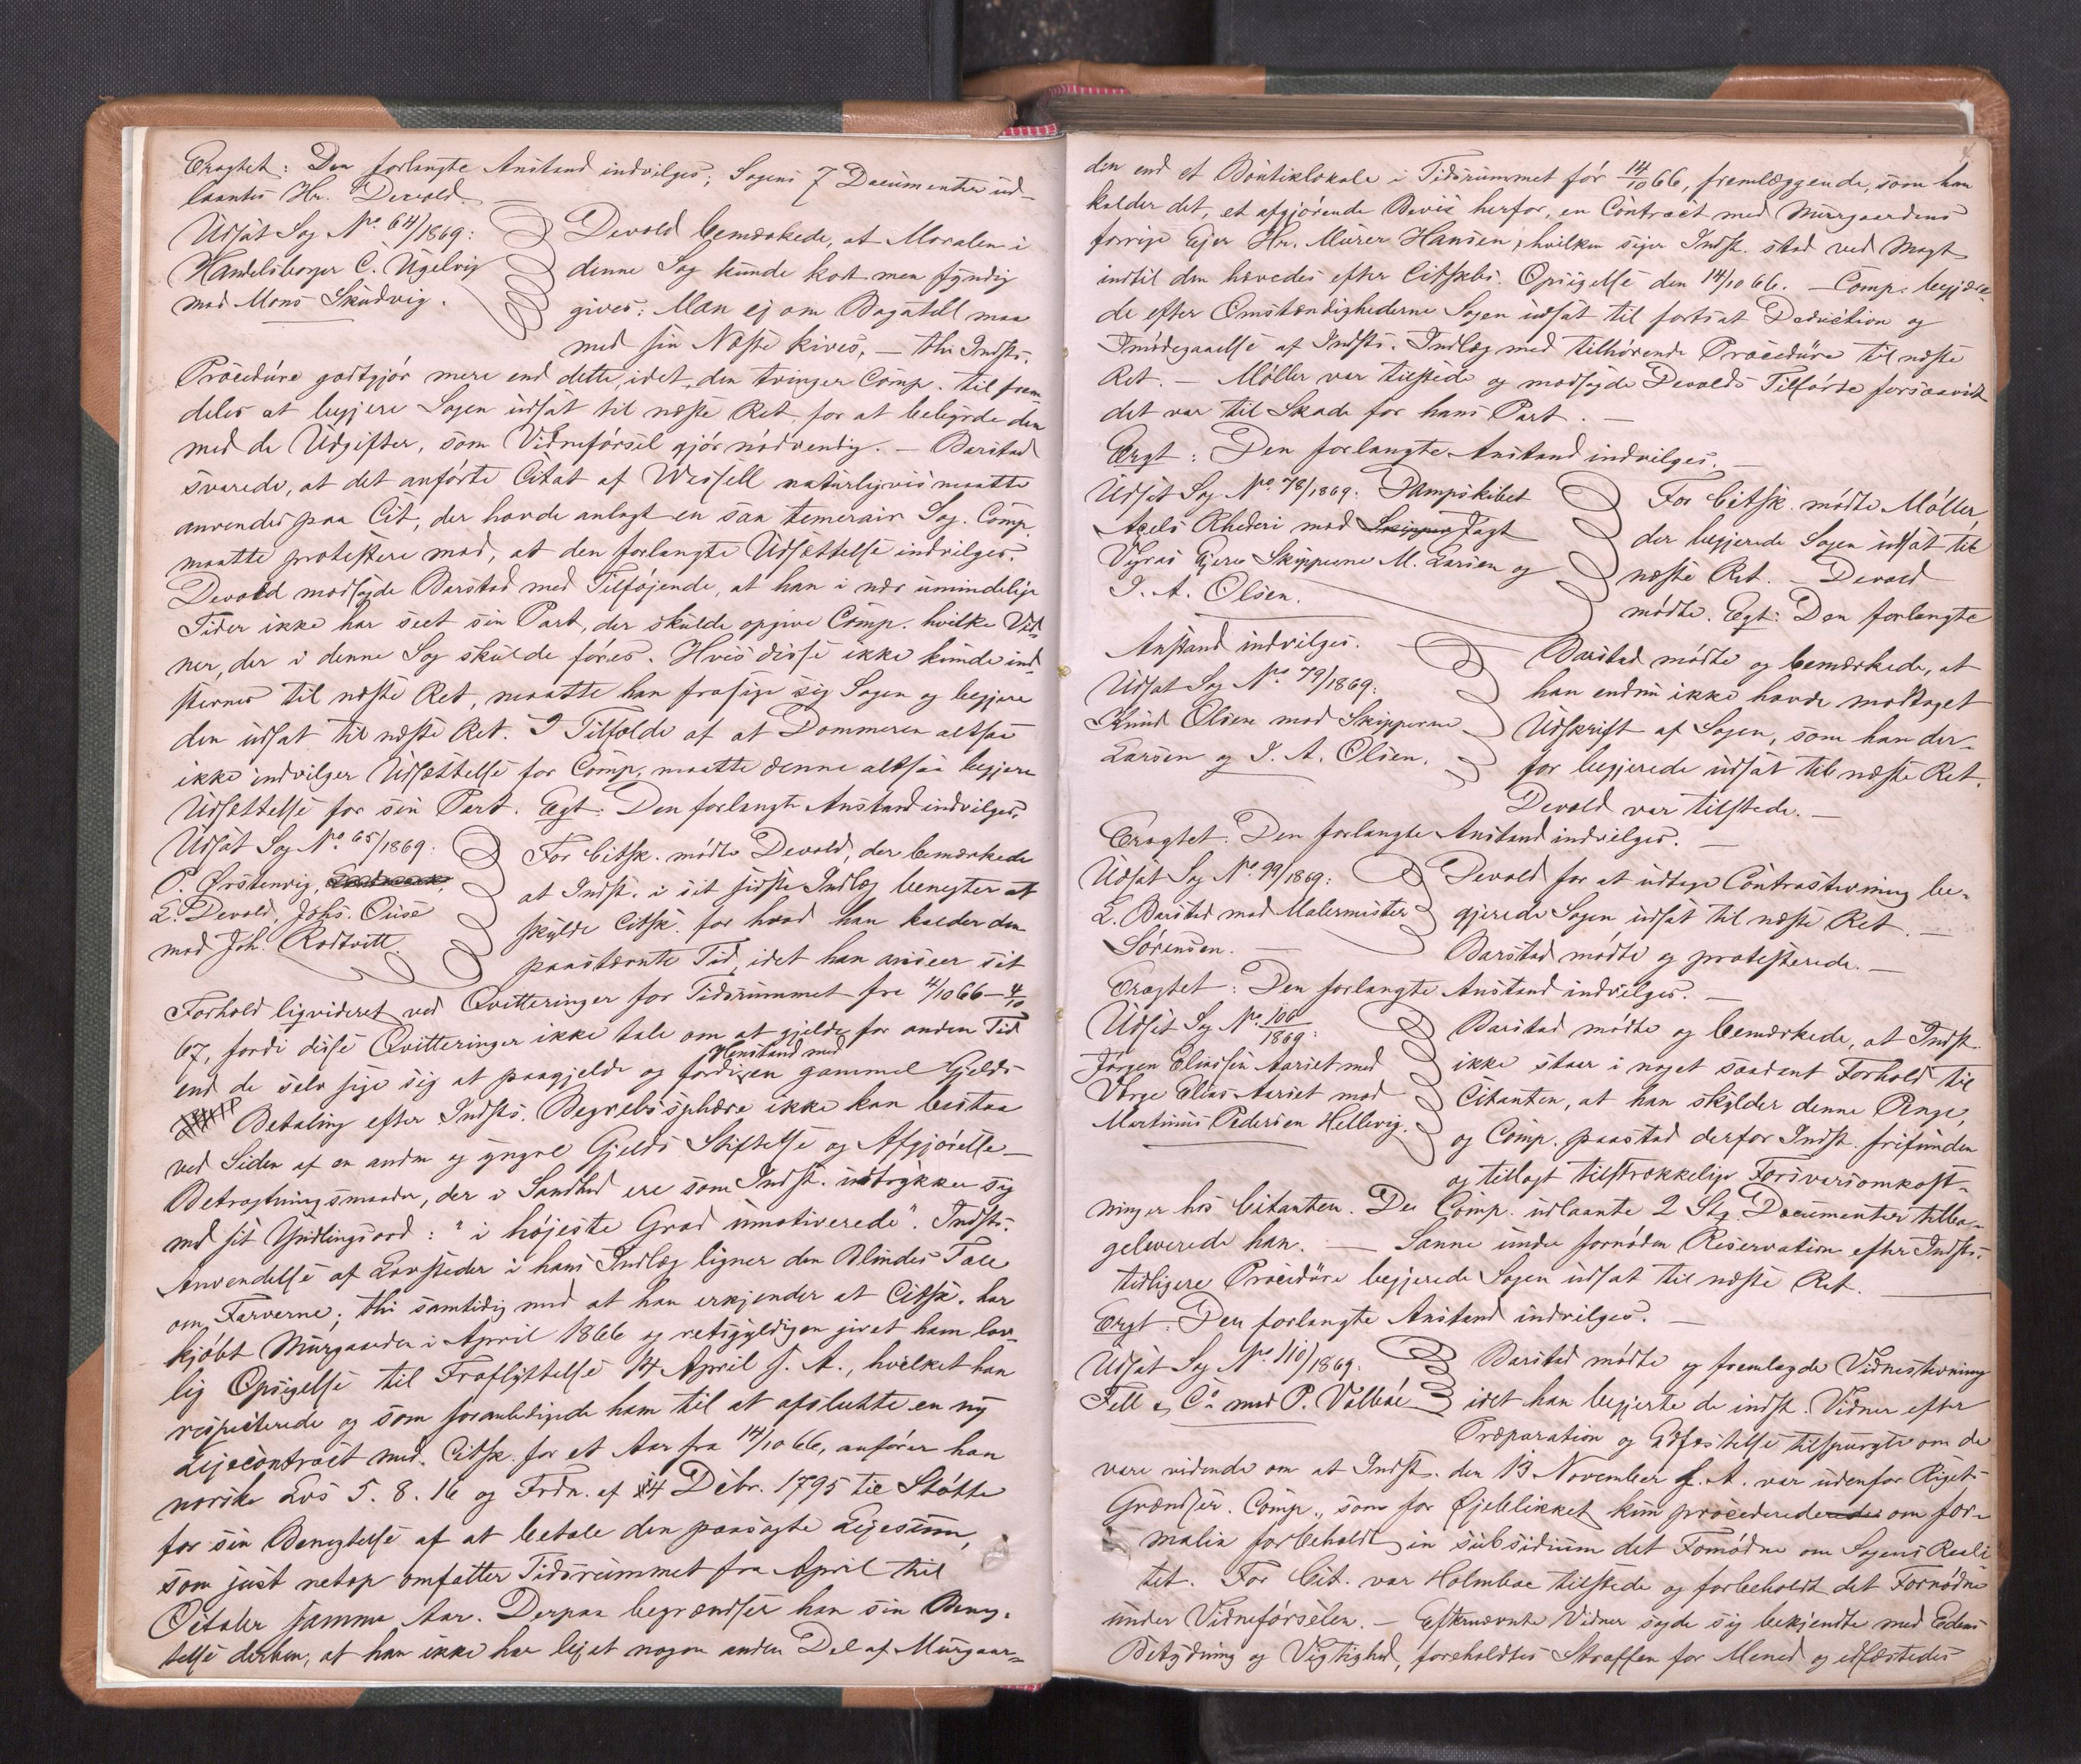 Eragtet: Den forlangte Anstand indvilges; Sagens 7 Documenter ud-
laantes Hr. Devold. —
Udsat Sag No. 64/1869:
Handelsborger C. Ugelvig
mod Mons Skudvig.
Devold bemærkede, at Moralen i
denne Sag kunde kort men fyndig
gives: Man ej om Bagatell maa
med sin Næste kives, — thi Indsts.
Procedure godtgjør mere end dette, idet den tvinger Comp. til frem-
deles at begjere Sagen udsat til næste Ret for at bebyrde den
med de Udgifter, som Vidneførsel gjør nødvendig. — Barstad
svarede, at det anførte Citat af Wessell naturligvis maatte
anvendes paa Cit., der havde anlagt en saa temerair Sag. Comp.
maatte protestere mod, at den forlangte Udsættelse indvilges.
Devold modsagde Barstad med Tilføjende, at han i nær umindelige
Tider ikke har seet sin Part, der skulde opgive Comp. hvilke Vid-
ner, der i denne Sag skulde føres. Hvis disse ikke kunde ind-
stevnes til næste Ret, maatte han frasige sig Sagen og begjere
den udsat til næste Ret. I Tilfælde af at Dommeren altsaa
ikke indvilger Udsættelse for Comp. maatte denne altsaa begjere
Udsættelse for sin Part. Egt: Den forlangte Anstand indvilges.
Udsat Sag No. 65/1869:
P. Ørstenvig,
L. Devold, Johs. Ouse
mod Joh. Rodtvitt.
For Citsk. mødte Devold, der bemærkede
at Indst. i sit sidste Indlæg benegter at
skylde Citsk. for hvad han kalder den
paastævnte Tid, idet han anseer sit
Forhold liqvideret ved Qvitteringer for Tidsrummet fra 4/10 66 – 4/10
67, fordi disse Qvitteringer ikke tale om at gjelde for anden Tid
end de selv sige sig at paagjelde og fordi Henstand med en gammel Gjelds
Betaling efter Indsts. Begrebssphære ikke kan bestaa
ved Siden af en anden og yngre Gjelds Stiftelse og Afgjørelse —
Betragtningsmaader, der i Sandhed ere som Indst. udtrykker sig
med sit Yndlingsord: "i højeste Grad umotiverede". Indsts.
Anvendelse af Lovsteder i hans Indlæg ligner den Blindes Tale
om Farverne; thi samtidig med at han erkjender at Citsk. har
kjøbt Murgaarden i April 1866 og retsgyldigen givet ham lov-
lig Opsigelse til Fraflyttelse 14 April s. A., hvilket han
respecterede og som foranledigede ham til at afslutte en ny
Lejecontract med Citsk. for et Aar fra 14/10 66, anfører han
norske Lovs 5. 8. 16 og Frdn. af 4 Debr. 1795 til Støtte
for sin Benegtelse af at betale den paasagte Lejesum,
som just netop omfatter Tidsrummet fra April til
October samme Aar. Derpaa begrændser han sin Beneg-
telse derhen, at han ikke har lejet nogen anden Del af Murgaar-
den end et Boutiklokale i Tidsrummet før 14/10 66, fremlæggende, som han
kalder det, et afgjørende Bevis herfor, en Contract med Murgaardens
forrige Ejer Hr. Murer Hansen, hvilken siger Indst. stod ved Magt
indtil den hævedes efter Citskts. Opsigelse den 14/10 66. — Comp. begjære-
de efter Omstændighederne Sagen udsat til fortsat Deduction og
Imødegaaelse af Indsts. Indlæg med tilhørende Procedure til næste
Ret. — Møller var tilstede og modsagde Devolds Tilførte forsaavidt
det var til Skade for hans Part. —
Eragt: Den forlangte Anstand indvilges. —
Udsat Sag No. 78/1869: Dampskibet
Axels Rhederi mod Skipper Jagt
Vigras Ejere Skipperne M. Larsen og
I. A. Olsen.
For Citsk. mødte Møller,
der begjerede Sagen udsat til
næste Ret. — Devold
mødte. Egt: Den forlangte
Anstand indvilges.
Udsat Sag No. 79/1869:
Knud Olsen mod Skipperne
Larsen og I. A. Olsen.
Barstad mødte og bemærkede, at
han endnu ikke havde modtaget
Udskrift af Sagen, som han der-
for begjerede udsat til næste Ret.
Devold var tilstede. —
Eragtet: Den forlangte Anstand indvilges. —
Udsat Sag No. 99/1869:
L. Barstad mod Malermester
Sørensen. —
Devold for at udtage Contrastevning be-
gjerede Sagen udsat til næste Ret. —
Barstad mødte og protesterede. —
Eragtet: Den forlangte Anstand indvilges. —
Udsat Sag No. 106/1869:
Jørgen Eliassen Aarset med
Værge Elias Aarset mod
Martinus Pedersen Hellevig.
Barstad mødte og bemærkede, at Indst.
ikke staar i noget saadant Forhold til
Citanten, at han skylder denne Penge,
og Comp. paastod derfor Indst. frifunden
og tillagt tilstrækkelige Forsvarsomkost-
ninger hos Citanten. De Comp. udlaante 2 Stk. Documenter tilba-
geleverede han. — Sanne under fornøden Reservation efter Indsts.
tidligere Procedure begjerede Sagen udsat til næste Ret. —
Eragt: Den forlangte Anstand indvilges. —
Udsat Sag No. 110/1869:
Fell & Co. mod P. Valbøe
Barstad mødte og fremlagde Vidnestevning
idet han begjerte de indst. Vidner efter
Præparation og Edfæstelse tilspurgte om de
vare vidende om at Indst. den 13 November f. A. var udenfor Rigets
Grændser. Comp., som for Øjeblikket kun procederede om for-
malia forbeholdt in subsidium det Fornødne om Sagens Reali-
tet. For Cit. var Holmboe tilstede og forbeholdt det Fornødne
under Vidneførselen. — Efternævnte Vidner sagde sig bekjendte med Edens
Betydning og Vigtighed, foreholdtes Straffen for Mened og edfæstedes